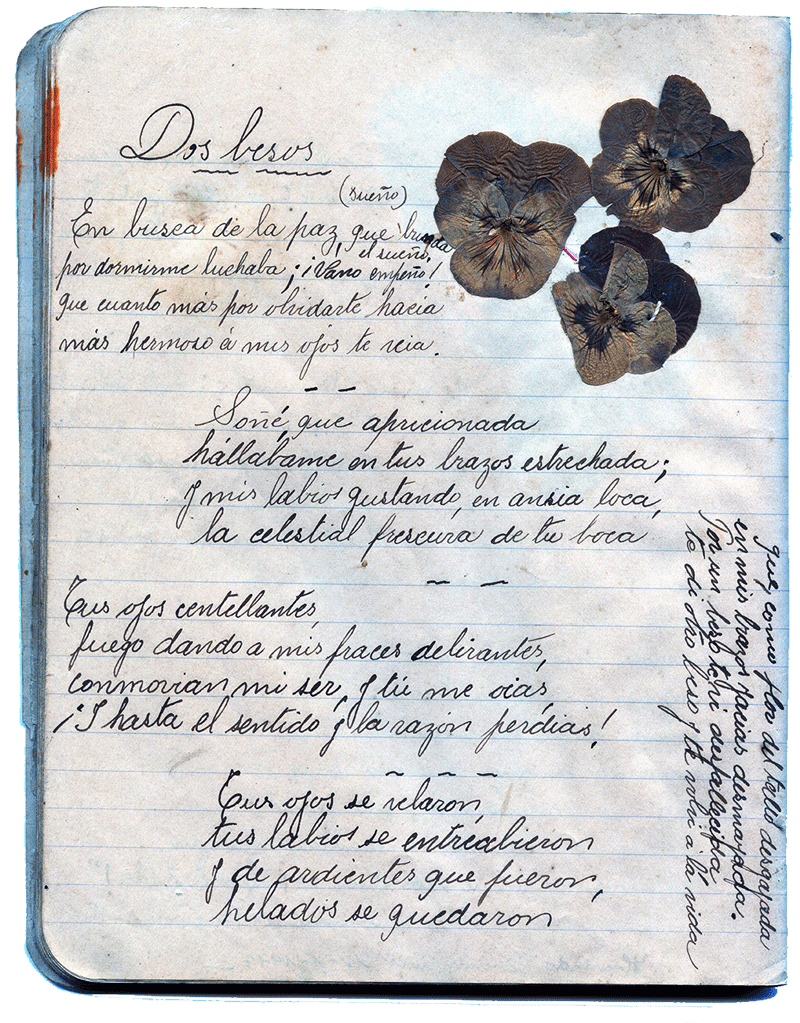 Dos besos
(sueño)
En busca de la paz que brinda
el sueño,
por dormirme luchaba; ¡Vano empeño!
que cuanto más por olvidarte hacía
más hermoso á mis ojos te veia.
Soñé, que apricionada
hállabame en tus brazos estrechada;
y mis labios gustando, en ansia loca,
la celestial frescura de tu boca
Tus ojos centellantes,
fuego dando a mis fraces delirantes,
conmovian mi ser, y tú me oias,
¡Y hasta el sentido y la razón perdias!
Tus ojos se velaron,
tus labios se entreabieron
y de ardientes que fueron,
helados se quedaron
que, como flor del tallo desgajada
en mis brazos yacias desmayada.
Por un beso te vi desfallecida
te di otro beso y te volvi á la vida